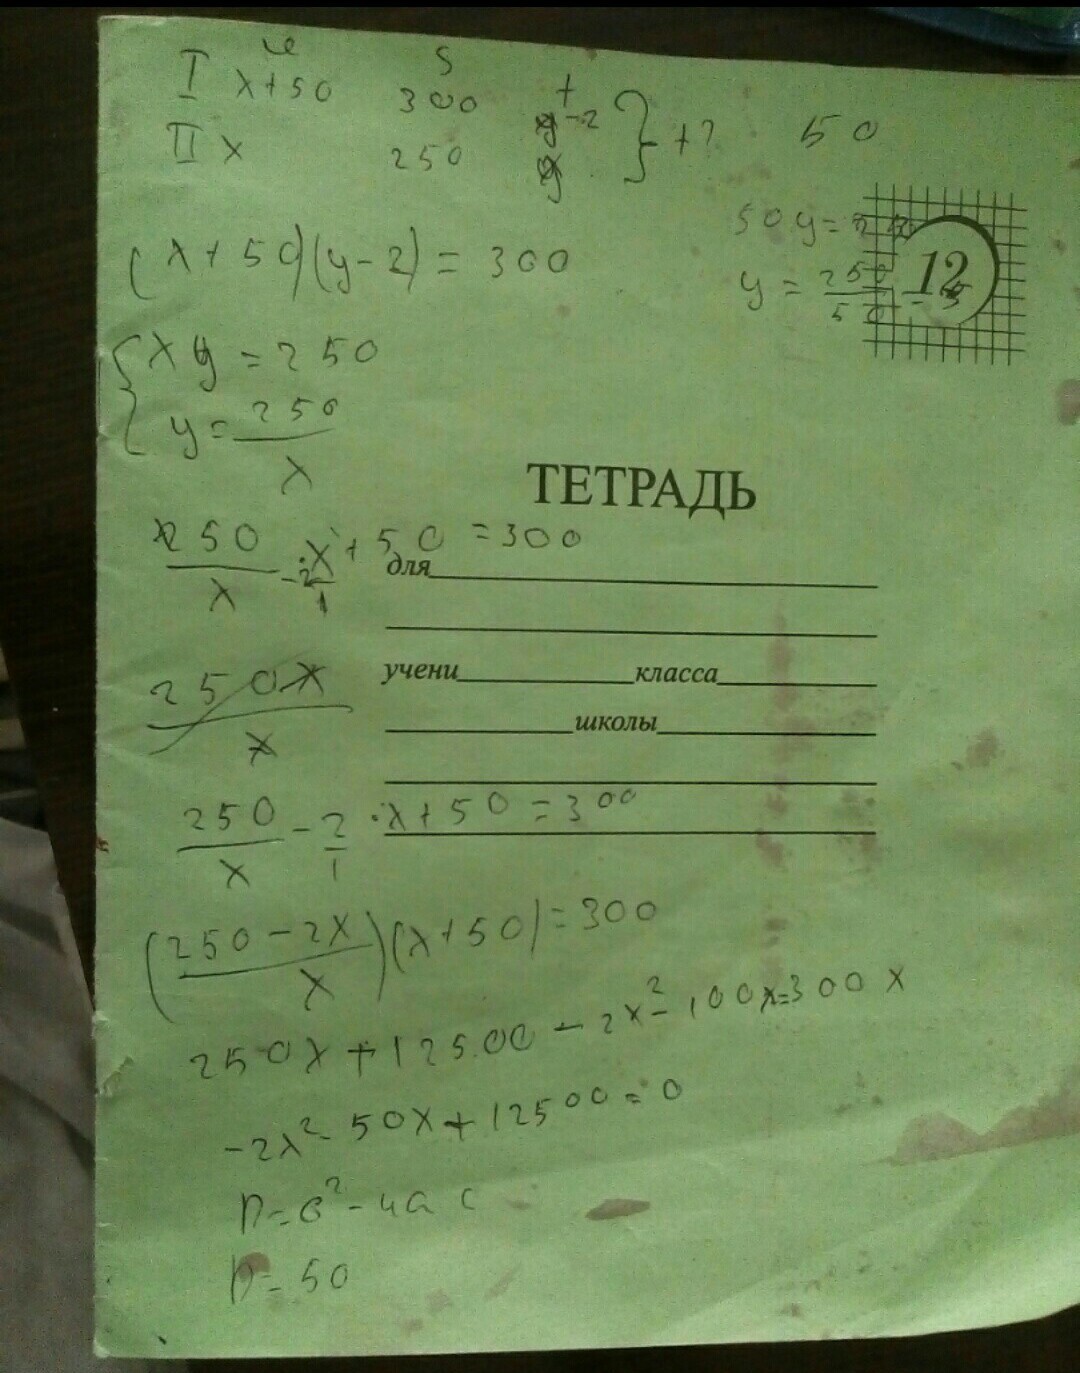 υ S t
I x+50 300 y-2
II x 250 y } t? 50
(x+50)(y-2)=300
50y=250
y=250/50=5
12
{xy=250
y=250/x
ТЕТРАДЬ
250/x -2/1 ·x+50=300
для
250x/x
учени класса
школы
250/x - 2/1 ·x+50=300
(250-2x/x)(x+50)=300
250x+12500-2x²-100x=300x
-2x²-50x+12500=0
D=в²-4ac
D=50